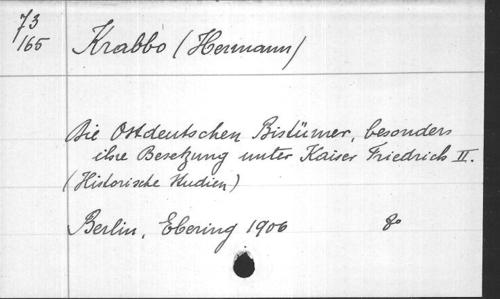 73
165
Krabbo (Hermann)
Die Ostdeutschen Bistümer, besonders
ihre Besetzung unter Kaiser Friedrich II.
(Historische Studien)
Berlin, Ebering 1906 8o